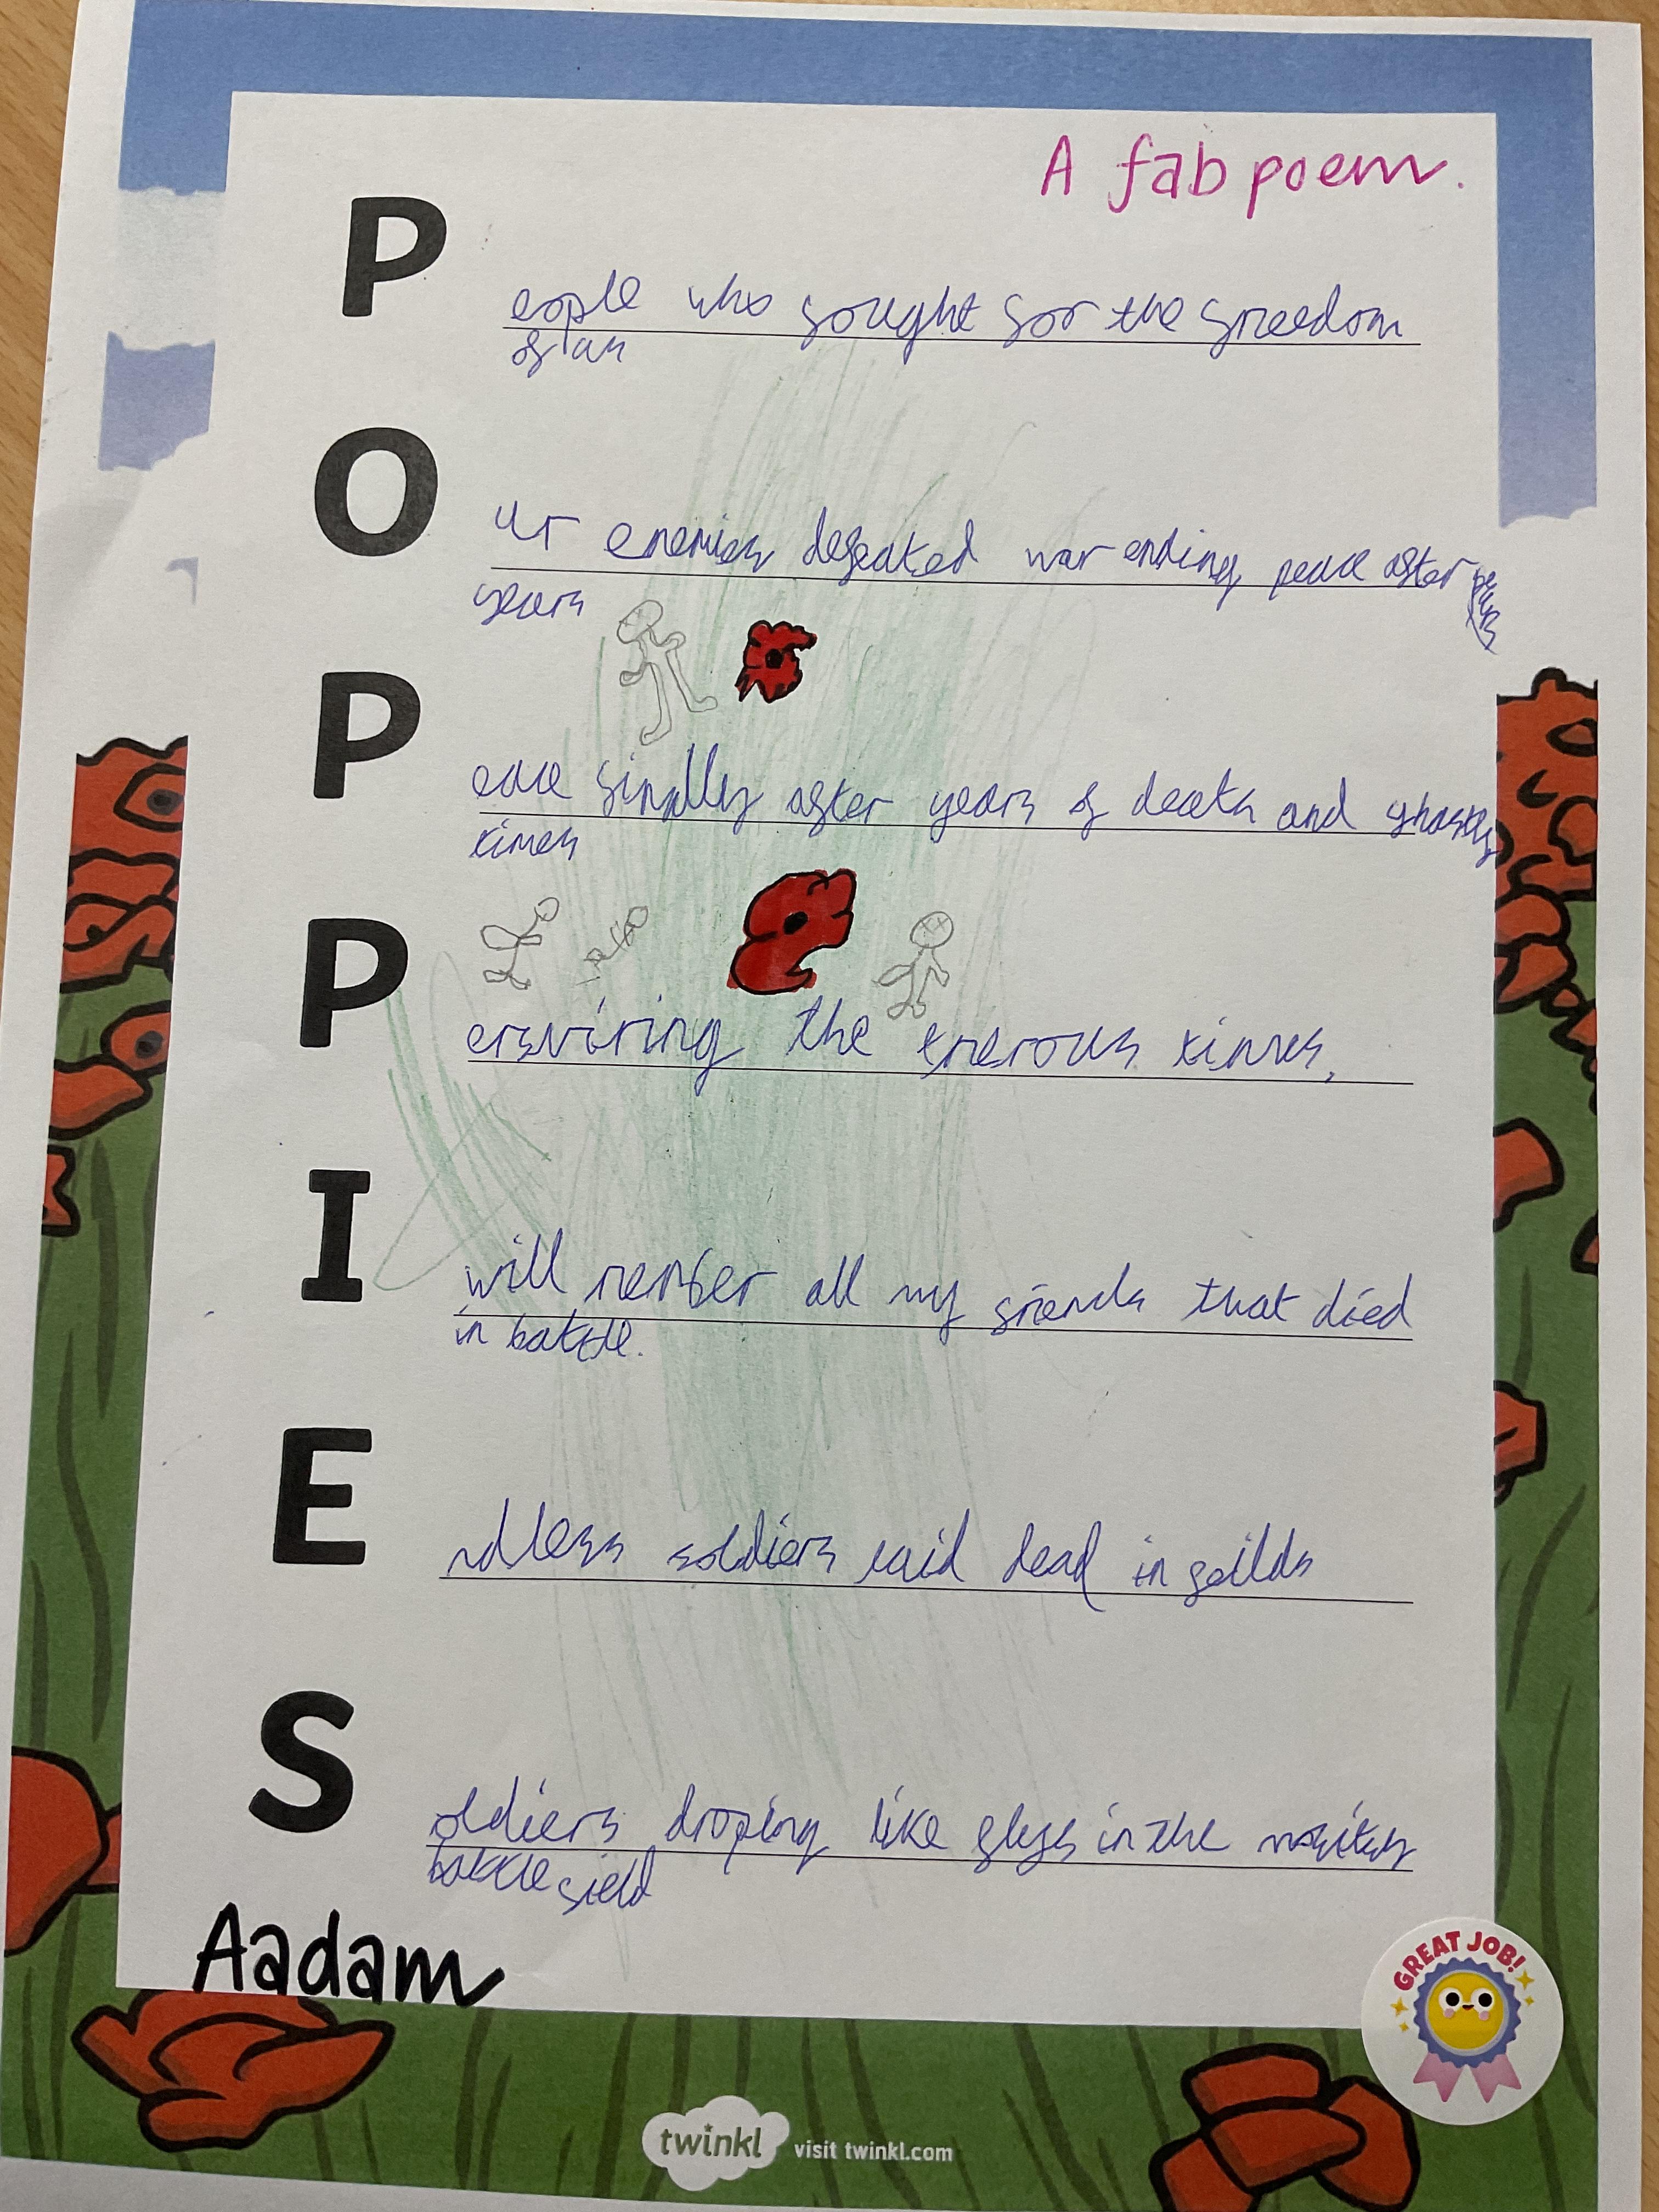 A fab poem.
P
eople who fought for the freedom
of us
O
ur enemies defeated war ending peace after
years
P
eace finally after years of death and ghastly
times
P
ersviring the
times,
I
will rember all my friends that died
in battle.
E
ndless soldiers laid dead in feilds
S
oldiers droping like flys in the
battle field
Aadam
GREAT JOB!
twinkl visit twinkl.com